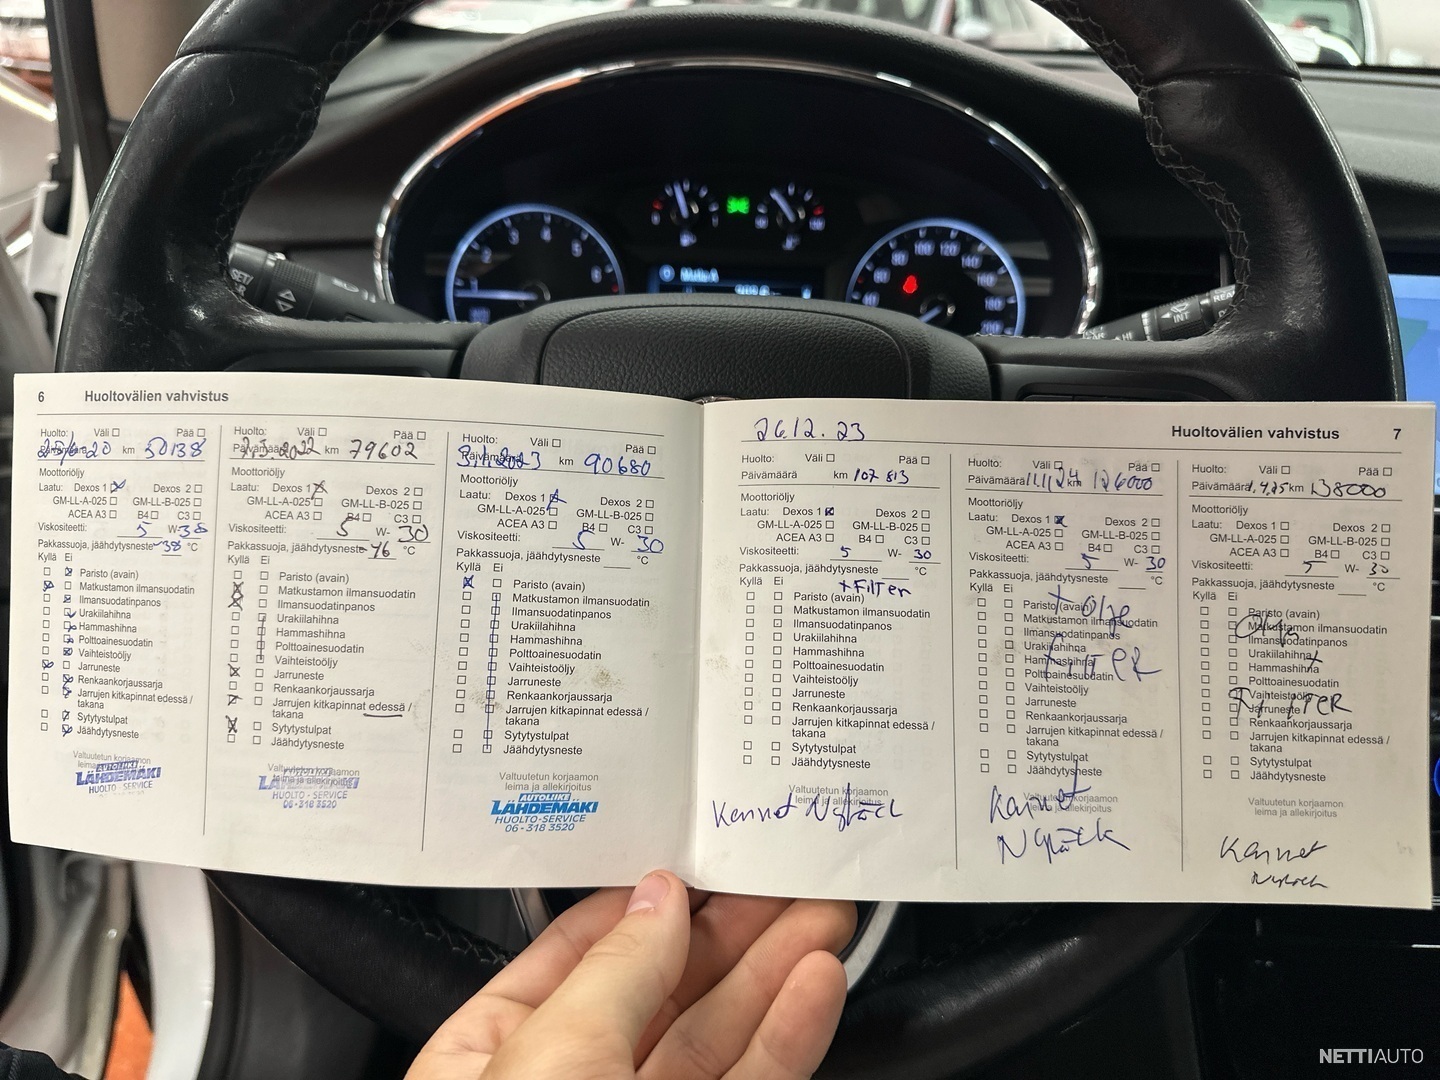 6 Huoltovälien vahvistus
Huolto: Väli Pää
Päivämäärä 25/6-20 km 50138
Moottoriöljy
Laatu: Dexos 1 Dexos 2
GM-LL-A-025 GM-LL-B-025
ACEA A3 B4 C3
Viskositeetti: 5 W-38
Pakkassuoja, jäähdytysneste -38 °C
Kyllä Ei
Paristo (avain)
Matkustamon ilmansuodatin
Ilmansuodatinpanos
Urakiilahihna
Hammashihna
Polttoainesuodatin
Vaihteistoöljy
Jarruneste
Renkaankorjaussarja
Jarrujen kitkapinnat edessä /
takana
Sytytystulpat
Jäähdytysneste
Valtuutetun korjaamon
AUTOLIIKE
LÄHDEMÄKI
HUOLTO-SERVICE
Huolto: Väli Pää
Päivämäärä 2.5.2022 km 79602
Moottoriöljy
Laatu: Dexos 1 Dexos 2
GM-LL-A-025 GM-LL-B-025
ACEA A3 B4 C3
Viskositeetti: 5 W- 30
Pakkassuoja, jäähdytysneste -46 °C
Kyllä Ei
Paristo (avain)
Matkustamon ilmansuodatin
Ilmansuodatinpanos
Urakiilahihna
Hammashihna
Polttoainesuodatin
Vaihteistoöljy
Jarruneste
Renkaankorjaussarja
Jarrujen kitkapinnat edessä /
takana
Sytytystulpat
Jäähdytysneste
Valtuutetun korjaamon
leima ja allekirjoitus
LÄHDEMÄKI
HUOLTO-SERVICE
06-318 3520
Huolto: Väli Pää
Päivämäärä 3.1.2023 km 90680
Moottoriöljy
Laatu: Dexos 1 Dexos 2
GM-LL-A-025 GM-LL-B-025
ACEA A3 B4 C3
Viskositeetti: 5 W- 30
Pakkassuoja, jäähdytysneste °C
Kyllä Ei
Paristo (avain)
Matkustamon ilmansuodatin
Ilmansuodatinpanos
Urakiilahihna
Hammashihna
Polttoainesuodatin
Vaihteistoöljy
Jarruneste
Renkaankorjaussarja
Jarrujen kitkapinnat edessä /
takana
Sytytystulpat
Jäähdytysneste
Valtuutetun korjaamon
leima ja allekirjoitus
AUTOLIIKE
LÄHDEMÄKI
HUOLTO-SERVICE
06-318 3520
Huoltovälien vahvistus 7
26.12.23
Huolto: Väli Pää
Päivämäärä km 107 813
Moottoriöljy
Laatu: Dexos 1 Dexos 2
GM-LL-A-025 GM-LL-B-025
ACEA A3 B4 C3
Viskositeetti: 5 W- 30
Pakkassuoja, jäähdytysneste °C
Kyllä Ei +Filter
Paristo (avain)
Matkustamon ilmansuodatin
Ilmansuodatinpanos
Urakiilahihna
Hammashihna
Polttoainesuodatin
Vaihteistoöljy
Jarruneste
Renkaankorjaussarja
Jarrujen kitkapinnat edessä /
takana
Sytytystulpat
Jäähdytysneste
Valtuutetun korjaamon
leima ja allekirjoitus
Kennet
Huolto: Väli Pää
Päivämäärä 11.11.24 km 126000
Moottoriöljy
Laatu: Dexos 1 Dexos 2
GM-LL-A-025 GM-LL-B-025
ACEA A3 B4 C3
Viskositeetti: 5 W- 30
Pakkassuoja, jäähdytysneste °C
Kyllä Ei
Paristo (avain)
Matkustamon ilmansuodatin
Ilmansuodatinpanos
Urakiilahihna
Hammashihna
Polttoainesuodatin
Vaihteistoöljy
Jarruneste
Renkaankorjaussarja
Jarrujen kitkapinnat edessä /
takana
Sytytystulpat
Jäähdytysneste
+ Olje
FILTER
Valtuutetun korjaamon
leima ja allekirjoitus
Kennet
Huolto: Väli Pää
Päivämäärä 1.4.25 km 138000
Moottoriöljy
Laatu: Dexos 1 Dexos 2
GM-LL-A-025 GM-LL-B-025
ACEA A3 B4 C3
Viskositeetti: 5 W- 30
Pakkassuoja, jäähdytysneste °C
Kyllä Ei
Paristo (avain)
Matkustamon ilmansuodatin
Ilmansuodatinpanos
Urakiilahihna
Hammashihna
Polttoainesuodatin
Vaihteistoöljy
Jarruneste
Renkaankorjaussarja
Jarrujen kitkapinnat edessä /
takana
Sytytystulpat
Jäähdytysneste
Valtuutetun korjaamon
leima ja allekirjoitus
Kennet
NETTIAUTO